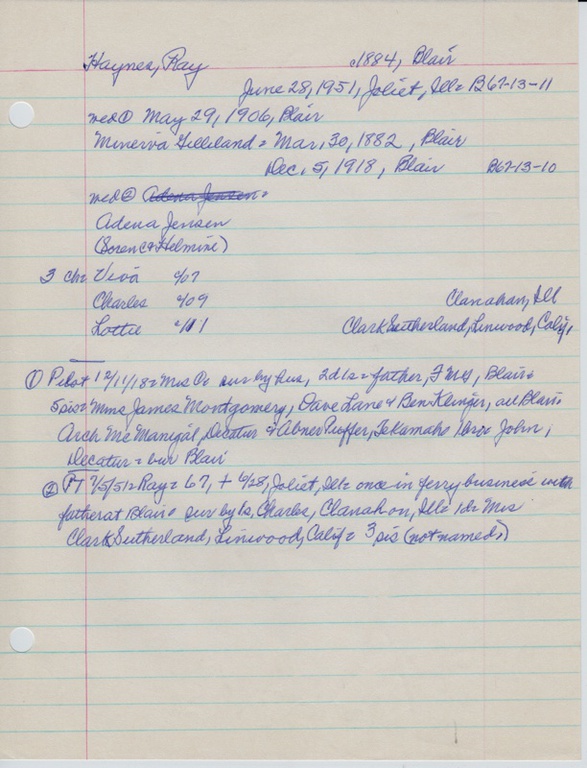 Haynes, Ray c1884, Blair
June 28, 1951, Joliet, Ill= B67-13-11
med ① May 29, 1906, Blair
Minerva Gilliland = Mar, 30, 1882, Blair
Dec. 5, 1918, Blair B67-13-10
med ② Adena Jensen =
Adena Jensen
(Soren & Helmine)
3 ch: Viva c/07
Charles c/09 Clanahan, Ill
Lottie c/11 Clark Sutherland, Linwood, Calif,
① Pilot 12/11/18 = Wash Co sur by hus, 2d 1s = father, Blair =
5 sis = Mmes James Montgomery, Dave Lane & Ben Klinger, all Blair =
Arch McManigal, Decatur & Abner Puffer, Tekamah = bro John,
Decatur = bur Blair
② PT 7/5/51 = Ray = 67, + 6/28, Joliet, Ill = once in ferry business with
father at Blair = sur by 1s, Charles, Clanahon, Ill = 1d = Mrs
Clark Sutherland, Linwood, Calif = 3 sis (not named,)